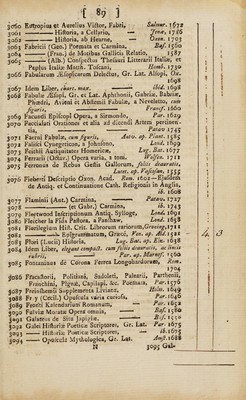 [ 89 ]
3060 Eutropius et Aurelius Victor, Fabri, Salmur. 1672
3061 ——— Historia, a Cellario, Jenæ, 1786
3062 ——— Historia, ab Hearne, Oxon. 1703
3063 Fabricii (Geo.) Poemata et Carmina, Bas. 1560
3064 ——— (Frau.) de Motibus Gallicis Relatio, 1587
3065 ——— (Alb.) Conspectus Thesauri Litterarii Italiæ, et
Pephus Italiæ Matth. Toscani, Hamb. 1730
3066 Fabularum Æsopicarum Delectus, Gr. Lat. Alsopi, Ox.
1698
3067 Idem Liber, chart. max. ibid. 1698
3068 Fabulæ Æsopi, Gr. et Lat. Aphthonii, Gabriæ, Babriæ,
Phædri, Avieni et Abstemii Fabulæ, a Neveletto, cum
figuris, Francf. 1660
3069 Facundi Episcopi Opera, a Sirmondo, Par. 1629
3070 Facciolati Orationes et alia ad dicendi Artem pertinen-
tia, Patav. 1745
3071 Faerni Fabulæ, cum figuris, Antv. ap. Plant. 1585
3072 Falisci Cynegeticon, a Johnson, Lond. 1699
3073 Falschii Antiquitates Homericæ, Lug. Bat. 1677
3074 Ferrarii (Octav.) Opera varia, 2 tom. Wolfen. 1711
3075 Ferronus de Rebus Gestis Gallorum, foliis deauratis,
Lutet. ap. Vascosan, 1555
3076 Fieberti Descriptio Oxon. Acad. Rom. 1602—Ejusdem
de Antiq. et Continuatione Cath. Religionis in Anglia,
ib. 1608
3077 Flaminii (Ant.) Carmina, Patav. 1727
3078 ——— (et Gabr.) Carmina, ib. 1743
3079 Fleetwood Inscriptionum Antiq. Sylloge, Lond. 1691
3080 Fletcher is Fido Pastore, a Fanshaw, Lond. 1658
3081 Florilegium Hist. Crit. Librorum rariorum, Groning. 1763
3082 ——— Epigrammatum, Græcè, Ven. ap. Ald. 1521
3083 Flori (Lucii) Historia, Lug. Bat. ap. Elz. 1638
3084 Idem Liber, elegant compact. cum foliis deauratis, ac lineis
rubris, Par. ap. Marnef. 1560
3085 Fontaninus de Corona Ferrea Longobardorum, Rom.
1704
3086 Fracastorii, Politiani, Sadoleti, Palearii, Parthenii,
Franchini, Pignæ, Capilupi, &c. Poemata, Par. 1576
3087 Freinshemii Supplementa Liviana, Holm. 1649
3088 Fr y (Cecil.) Opuscula varia curiosa, Par. 1646
3089 Fronto Kalendarium Romanum, Par. 1652
3090 Fulviæ Moratæ Opera omnia, Bas. 1580
3091 Galateus de Situ Japigiæ, Bas. 1550
3092 Galei Historiæ Poeticæ Scriptores, Gr. Lat. Par. 1675
3093 ——— Historiæ Poeticæ Scriptores, ib. 1675
3094 ——— Opuscula Mythologica, Gr. Lat. Amst. 1688
N 3095 Gal-
4 . 3